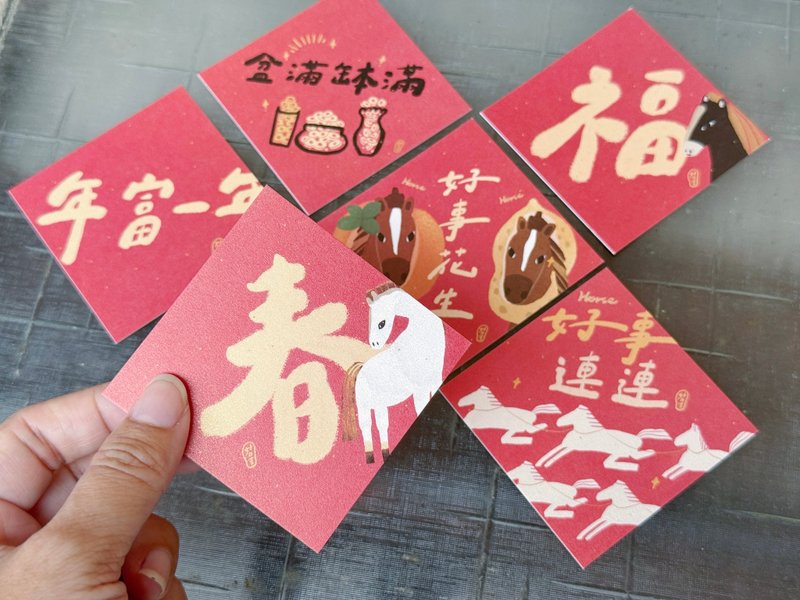 盆滿缽滿
福
年富一年
Horse
Horse
好事花生
春
Horse
好事
連連